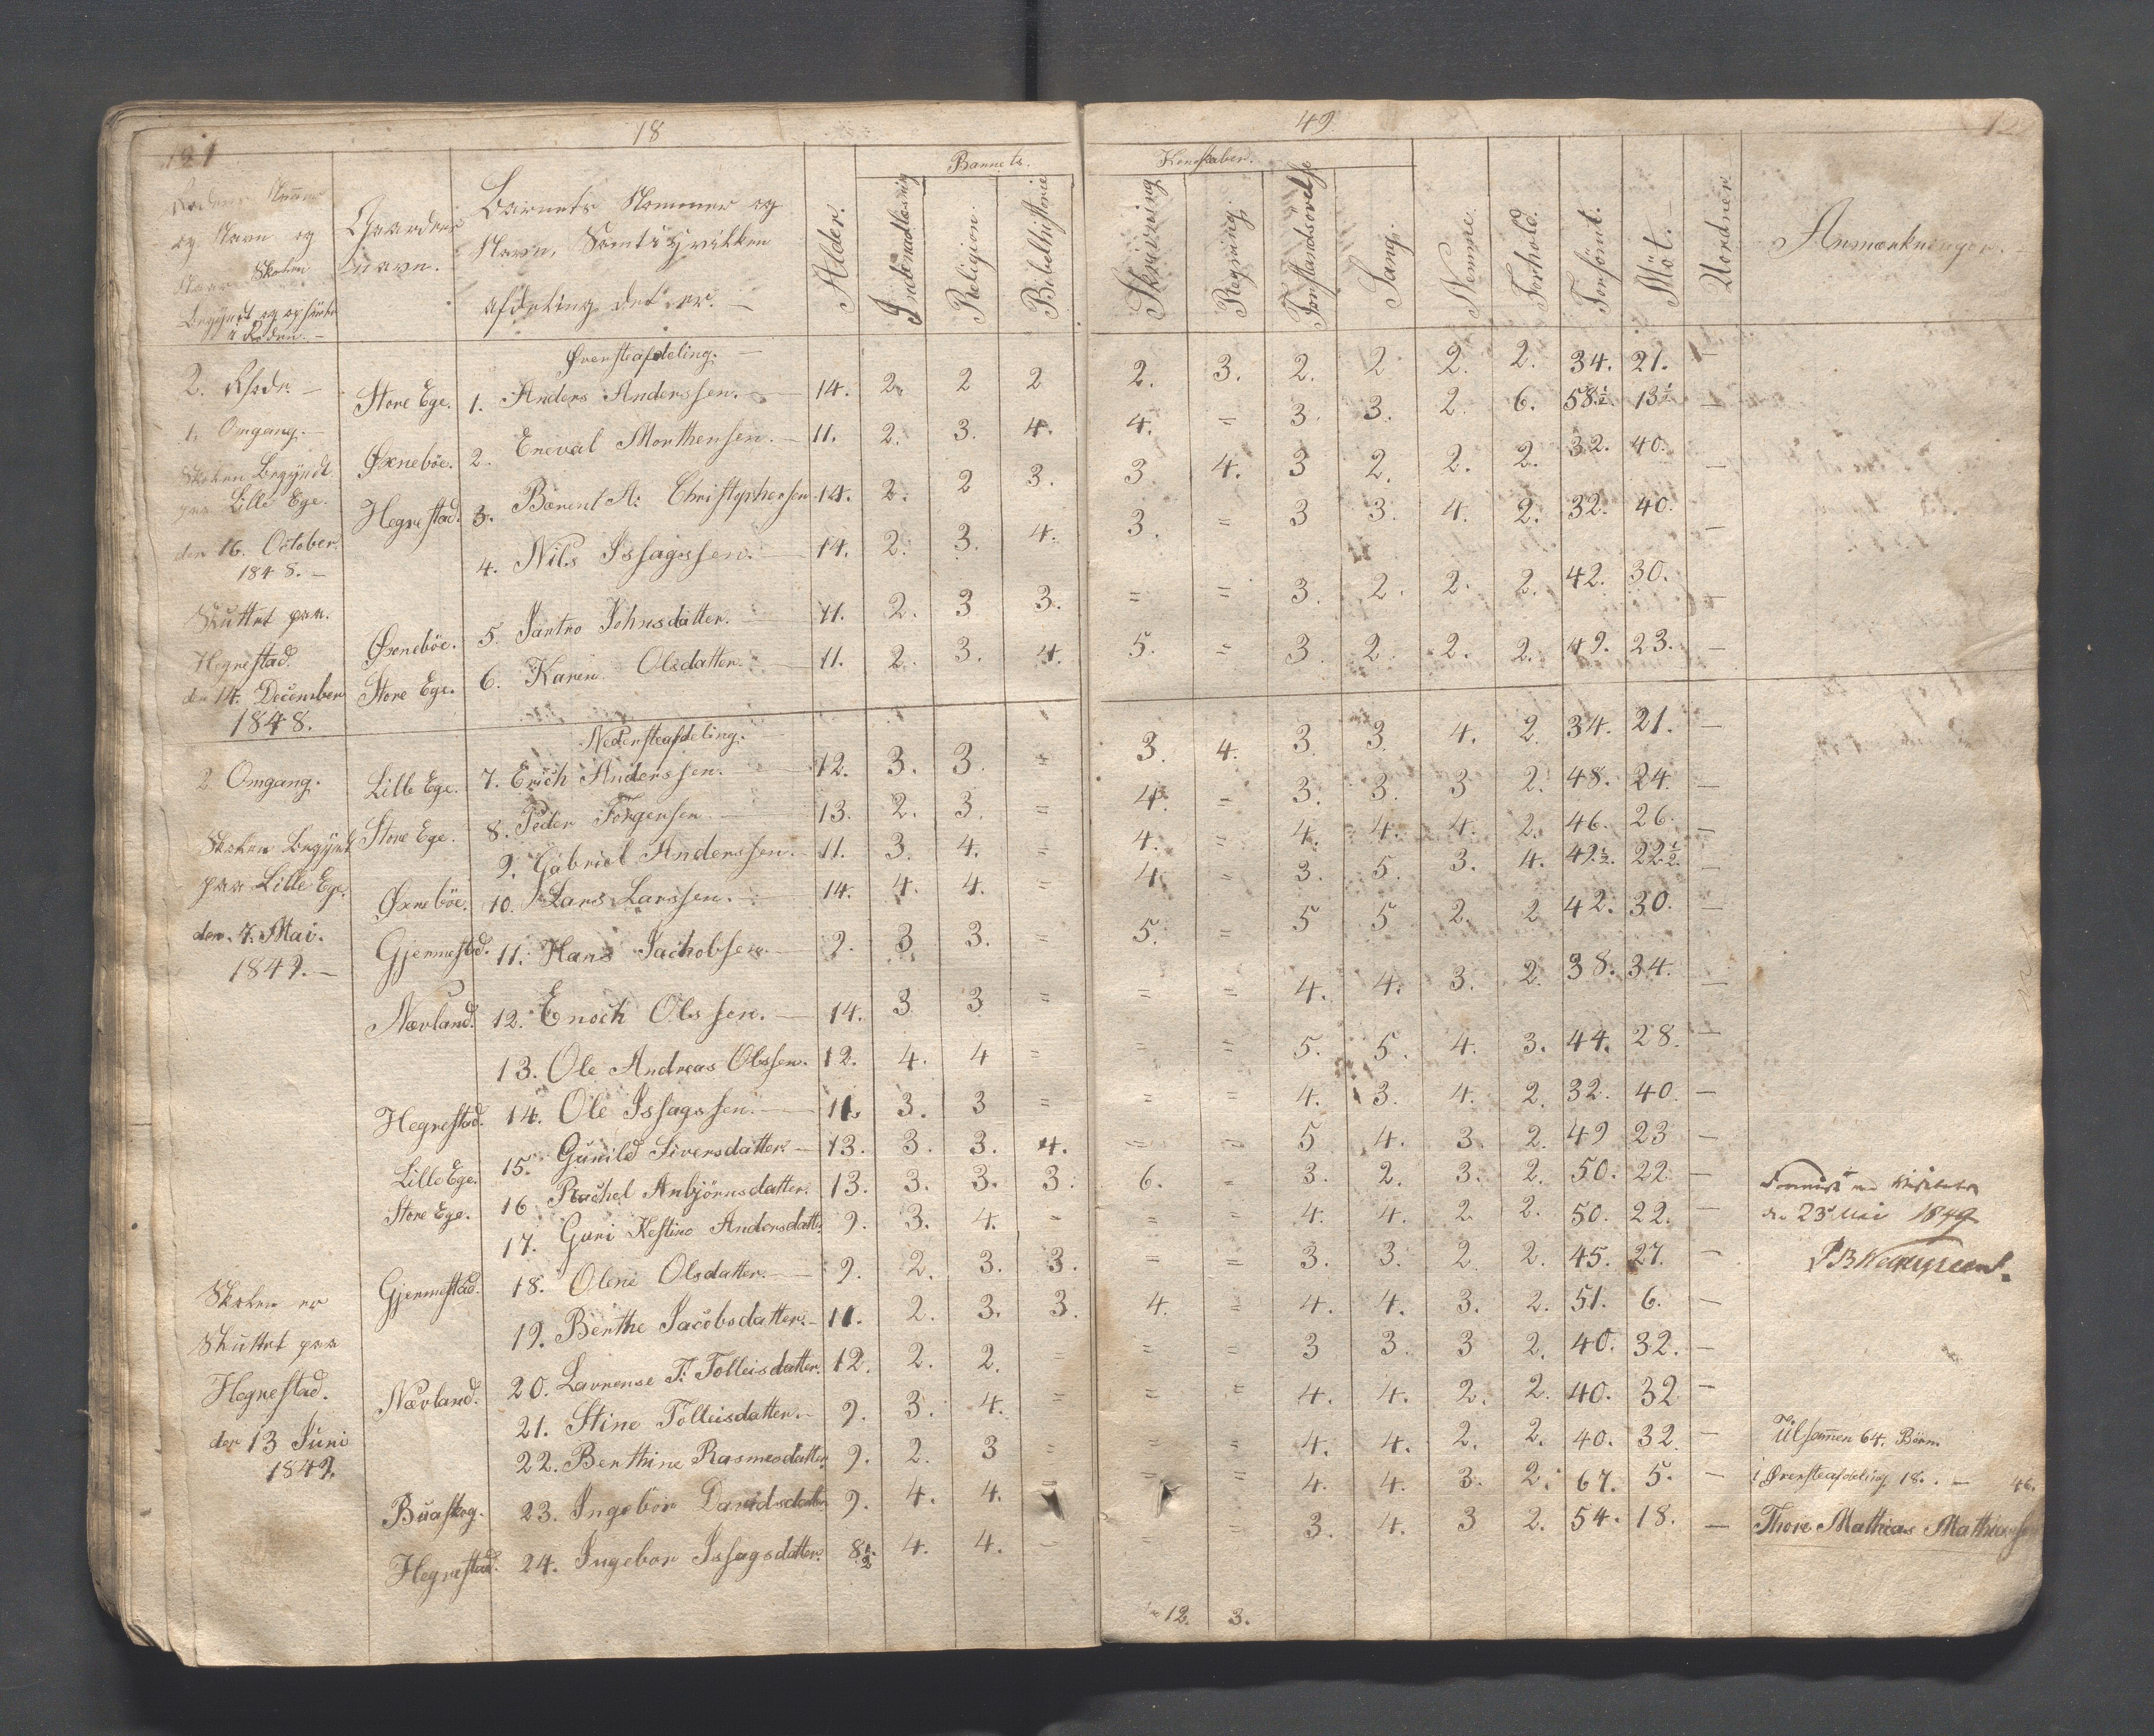 121 18 49 12
Rodens Nummer og Navn og Naar Skolen Begyndt og ophørte i Roden. —
Gaardens navn.
Barnets Nommer og Navn, Samt i hvilken afdeling det er. —
Alder.
Barnets Kundskaber.
Indenadlæsning
Religion.
Bibelhistorie
Skrivning
Regning.
Forstandsøvelse
Sang.
Nemme.
Forhold.
Forsömt.
Möt.
Uordner
Anmærkninger. —
Øversteafdeling. —
2. Rode. — Store Ege. 1. Anders Anderssen. — 14. 2. 2 2 2. 3. 2. 2 2. 2. 34. 21. —
1. Omgang. —
Øxneböe. 2. Eneval Morthensen. — 11. 2. 3. 4. 4. = 3. 3. 2. 6. 58½ 13½ —
Skolen Begyndt
paa Lille Ege.
Hegrestad. 3. Barent A: Christophersen 14. 2. 2 3. 3. 4. 3 2. 2. 2. 32. 40. —
den 16. October
1848. —
4. Nils Issagssen. — 14. 2. 3. 4. 3. = 3 3. 4. 2. 32. 40. —
Sluttet paa.
Hegrestad.
Øxneböe. 5. Johnsdatter. — 11. 2. 3 3. = = 3. 2. 2. 2. 42. 30. —
den 14. December
1848.
Store Ege. 6. Karen Olsdatter. — 11. 2. 3. 4. 5. = 3. 2. 2. 2. 49. 23. —
Nedersteafdeling. —
2 Omgang. Lille Ege. 7. Erich Anderssen. — 12. 3. 3. = 3. 4. 3. 3. 4. 2. 34. 21. —
Skolen Begyndt Store Ege. 8. Peder Torgersen — 13. 2. 3. = 4. = 3. 3. 3 2. 48. 24. —
9. Gabriel Anderssen. — 11. 3. 4. = 4. = 4. 4. 4. 2. 46. 26. —
paa Lille Ege.
Øxneböe. 10. Lars Larssen. — 14. 4. 4. = 4. = 3. 5. 3. 4. 49½. 22½. —
den. 7. Mai.
1849. —
Gjermestad. 11. Hans Jachobsen. — 9. 3 3. = 5. = 5 5 2. 2 42. 30. —
Nævland. 12. Enoch Olssen. — 14. 3 3 = = = 4. 4. 3. 2. 38. 34. —
13. Ole Andreas Olssen. 12. 4. 4 = = = 5. 5. 4. 3. 44. 28. —
Hegrestad. 14. Ole Issagssen. — 11. 3. 3 = = = 4. 3. 4. 2. 32. 40. —
Lille Ege. 15. Gunild Siversdatter. — 13. 3. 3. 4. = = 5 4. 3. 2. 49 23 —
Store Ege. 16 Rachel Anbjörnsdatter. 13. 3. 3. 3. 6. = 3. 2. 3. 2. 50. 22. —
17. Guri Kestine Andersdatt. 9. 3. 4. = = = 4. 4. 2 2. 50. 22. —
Gjermestad. 18. Olene Olsdatter. — 9. 2. 3. 3. = = 3. 3. 2 2. 45. 27. —
19. Berthe Jacobsdatter. — 11. 2. 3. 3. 4. = 4. 4. 3. 2. 51. 6. —
Nævland. 20. Lavrense T: Tolleisdatter. 12. 2. 2. = = = 3 3. 3 2. 40. 32. —
21. Stine Tolleisdatter. — 9. 3. 4. = = = 4. 4. 2. 2. 40. 32 —
22. Berthine Rasmesdatter 9. 2. 3 = = = 4. 4. 2. 2. 40. 32. —
Buaskog. 23. Ingebor Davidsdatter 9. 4. 4. = = = 4. 4. 3. 2. 67. 5. —
Hegrestad. 24. Ingebor Issagsdatter. 8½ 4. 4. — = = 3. 4. 3 2. 54. 18. —
Skolen er
Sluttet paa
Hegrestad.
den 13 Juni
1849.
12. 3.
23 Mai 1849
64. Börn
i Øversteafdeling 18. . — 46.
Thore Mathias Mathiassen